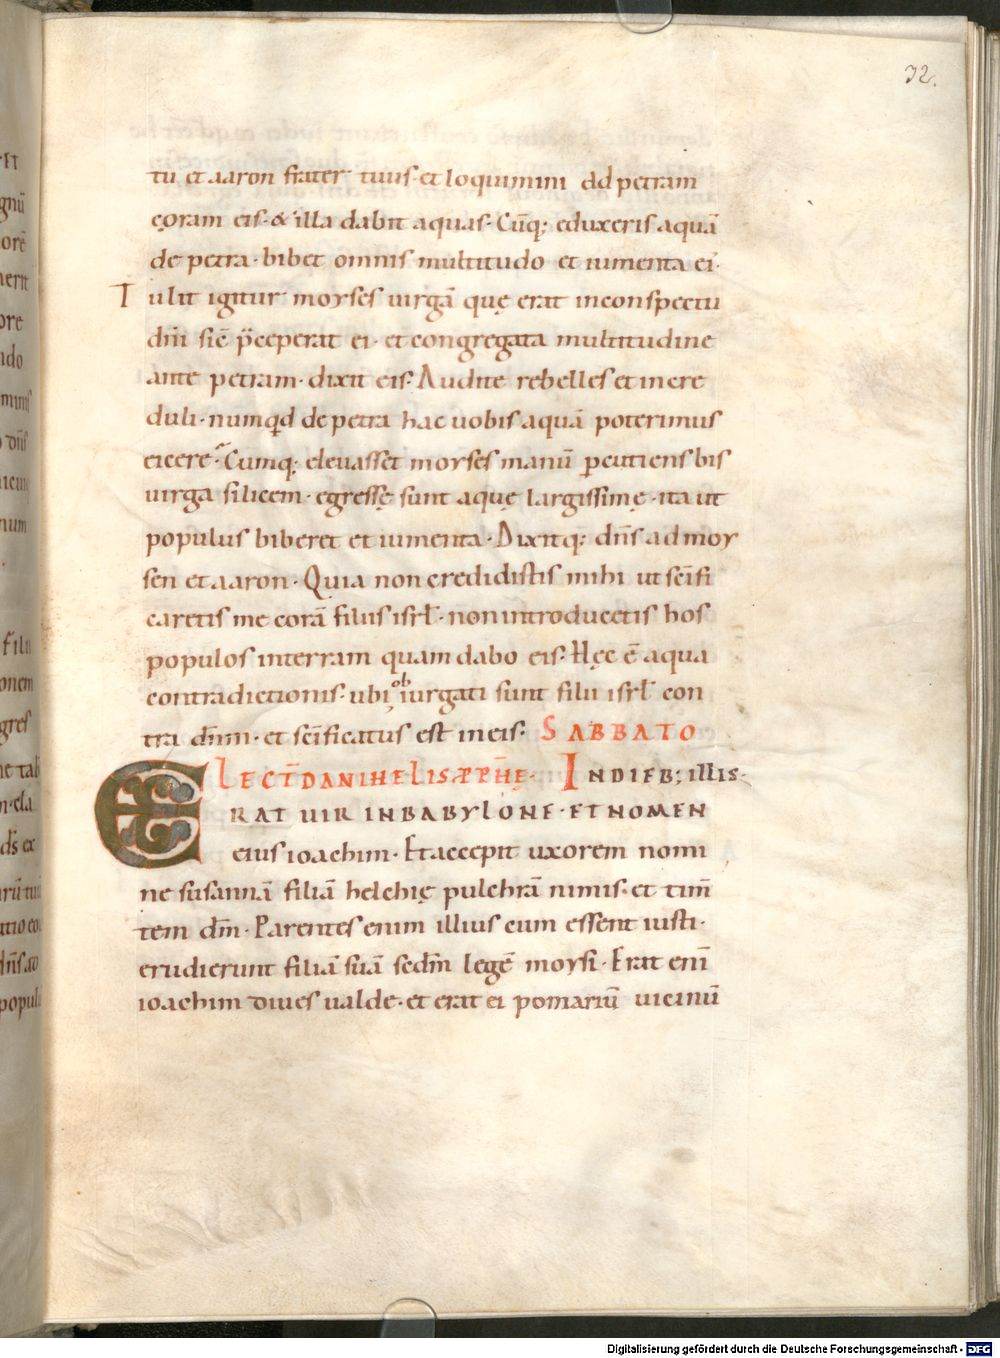 32.
tu et aaron frater tuus· et loquimini ad petram
coram eis· & illa dabit aquas· Cūq; eduxeris aquā
de petra· bibet omnis multitudo et iumenta ei·
Tulit igitur moyses uirgā quę erat inconspectu
dn̄i sic̄ p̄ceperat ei· et congregata multitudine
ante petram· dixit eis· Audite rebelles et incre
duli· numqd de petra hac uobis aquā poterimus
eicere· Cumq; eleuasset moyses manū pcutiens bis
uirga silicem· egressę sunt aquę largissimę· ita ut
populus biberet et iumenta· Dixitq; dn̄s ad moy
sen et aaron· Quia non credidistis mihi ut sc̄ifi
caretis me corā filiis isrł· non introducetis hos
populos interram quam dabo eis· Hęc ē aqua
contradictionis· ubi ob iurgati sunt filii isrł con
tra dn̄m· et sc̄ificatus est in eis· SABBATO
LECT̄ DANIHELIS PPH̄Ę· INDIEB; illis·
ERAT UIR INBABYLONE· ET NOMEN
eius ioachim· Et accepit uxorem nomi
ne susannā filiā helchię pulchrā nimis· et tim̄
tem dm̄· Parentes enim illius cum essent iusti·
erudierunt filiā suā sedm̄ legē moysi· Erat eni̅
ioachim diues ualde· et erat ei pomariū uicinū
Digitalisierung gefördert durch die Deutsche Forschungsgemeinschaft - DFG